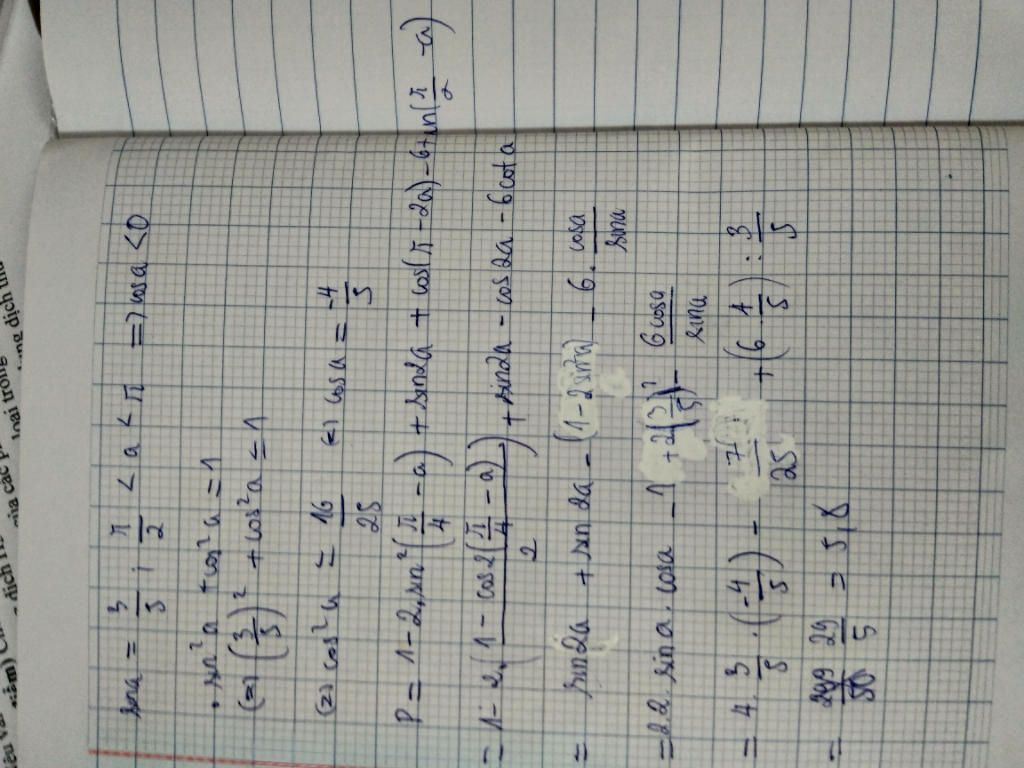 sina = 3/5 ; π/2 < a < π => cosa < 0
• sin²a + cos²a = 1
(=) (3/5)² + cos²a = 1
(=) cos²a = 16/25 (=) cosa = -4/5
P = 1 - 2.sin²(π/4 - a) + sin2a + cos(π - 2a) - 6tan(π/2 - a)
= 1 - 2.(1 - cos2(π/4 - a)/2) + sin2a - cos2a - 6cota
= sin2a + sin2a - (1 - 2sin²a) - 6. cosa/sina
= 2.2.sina.cosa - 1 + 2(3/5)² - 6cosa/sina
= 4. 3/5 . (-4/5) - 7/25 + (6. 4/5) : 3/5
= 29/5 = 5,8